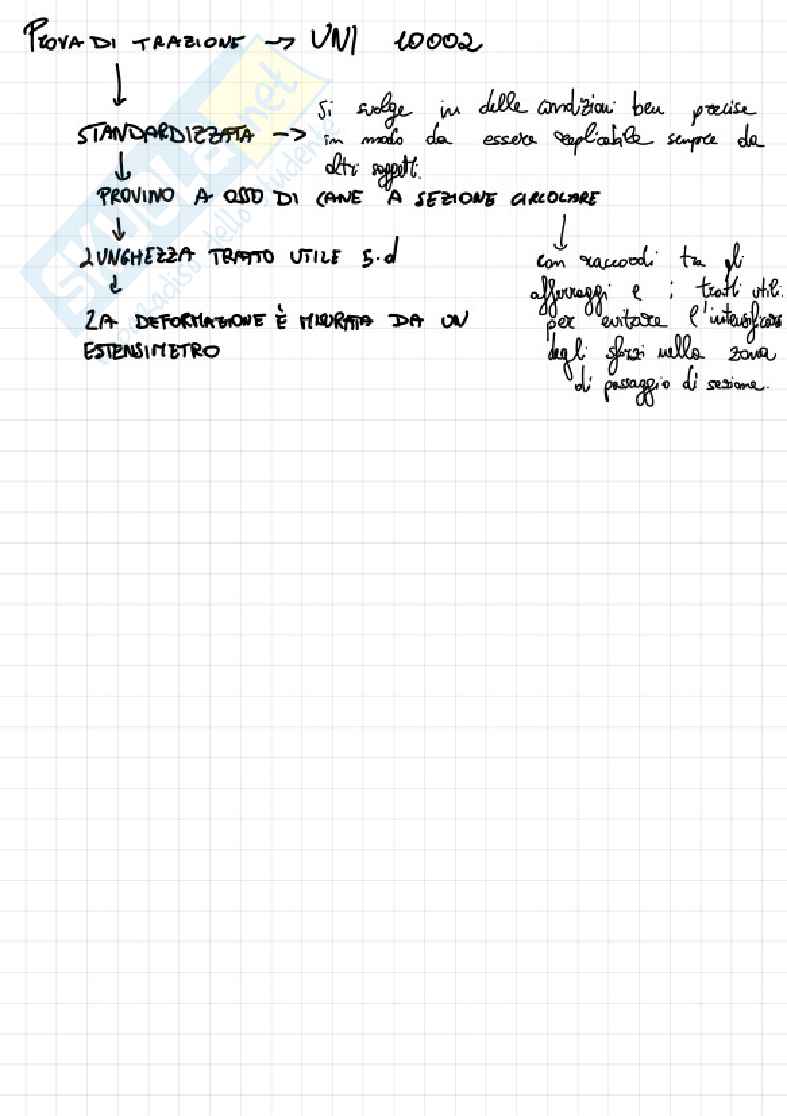 PROVA DI TRAZIONE -> UNI 10002
STANDARDIZZATA -> Si svolge in delle condizioni ben precise
in modo da essere replicabile sempre da
altri soggetti.
PROVINO A OSSO DI CANE A SEZIONE CIRCOLARE
LUNGHEZZA TRATTO UTILE 5·d
LA DEFORMAZIONE È MISURATA DA UN
ESTENSIMETRO
con raccordi tra gli
afferraggi e i tratti utili
per evitare l'intensificarsi
degli sforzi nella zona
di passaggio di sezione.
SKUOLA.net
paradiso dello studente